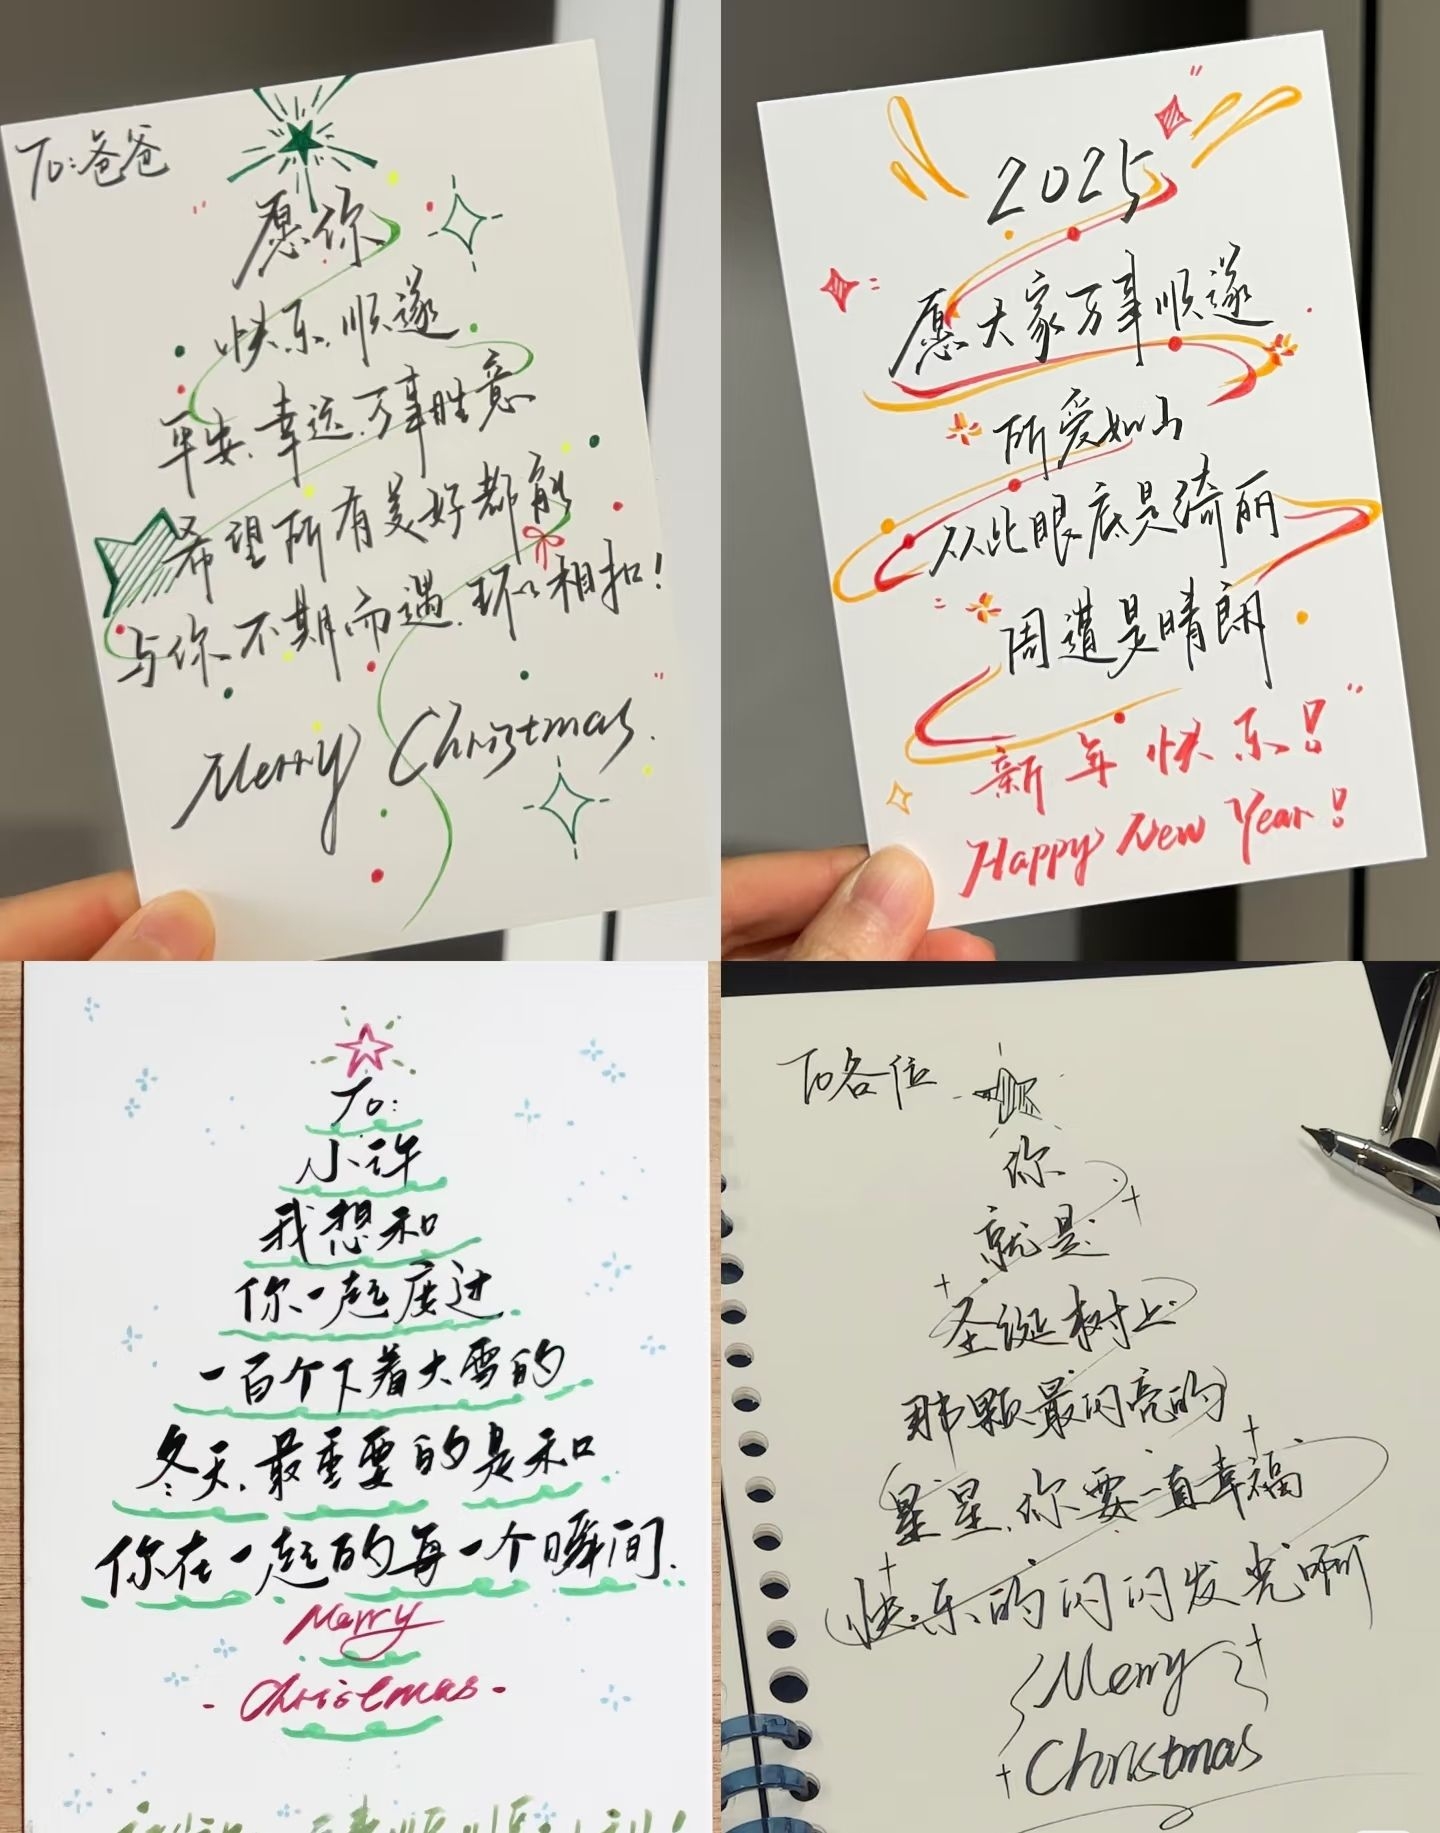 To:爸爸
愿你
快乐.顺遂
平安.幸运.万事胜意
希望所有美好都能
与你不期而遇.环环相扣!
Merry Christmas.
2025
愿大家万事顺遂
所爱如山
从此眼底是绮丽
周遭是晴朗
新年快乐!
Happy New Year!
To:
小许
我想和
你一起度过
一百个下着大雪的
冬天,最重要的是和
你在一起的每一个瞬间.
Merry
-Christmas-
To各位
你
就是
圣诞树上
那颗最闪亮的
星星,你要一直幸福
快乐的闪闪发光啊
Merry
Christmas